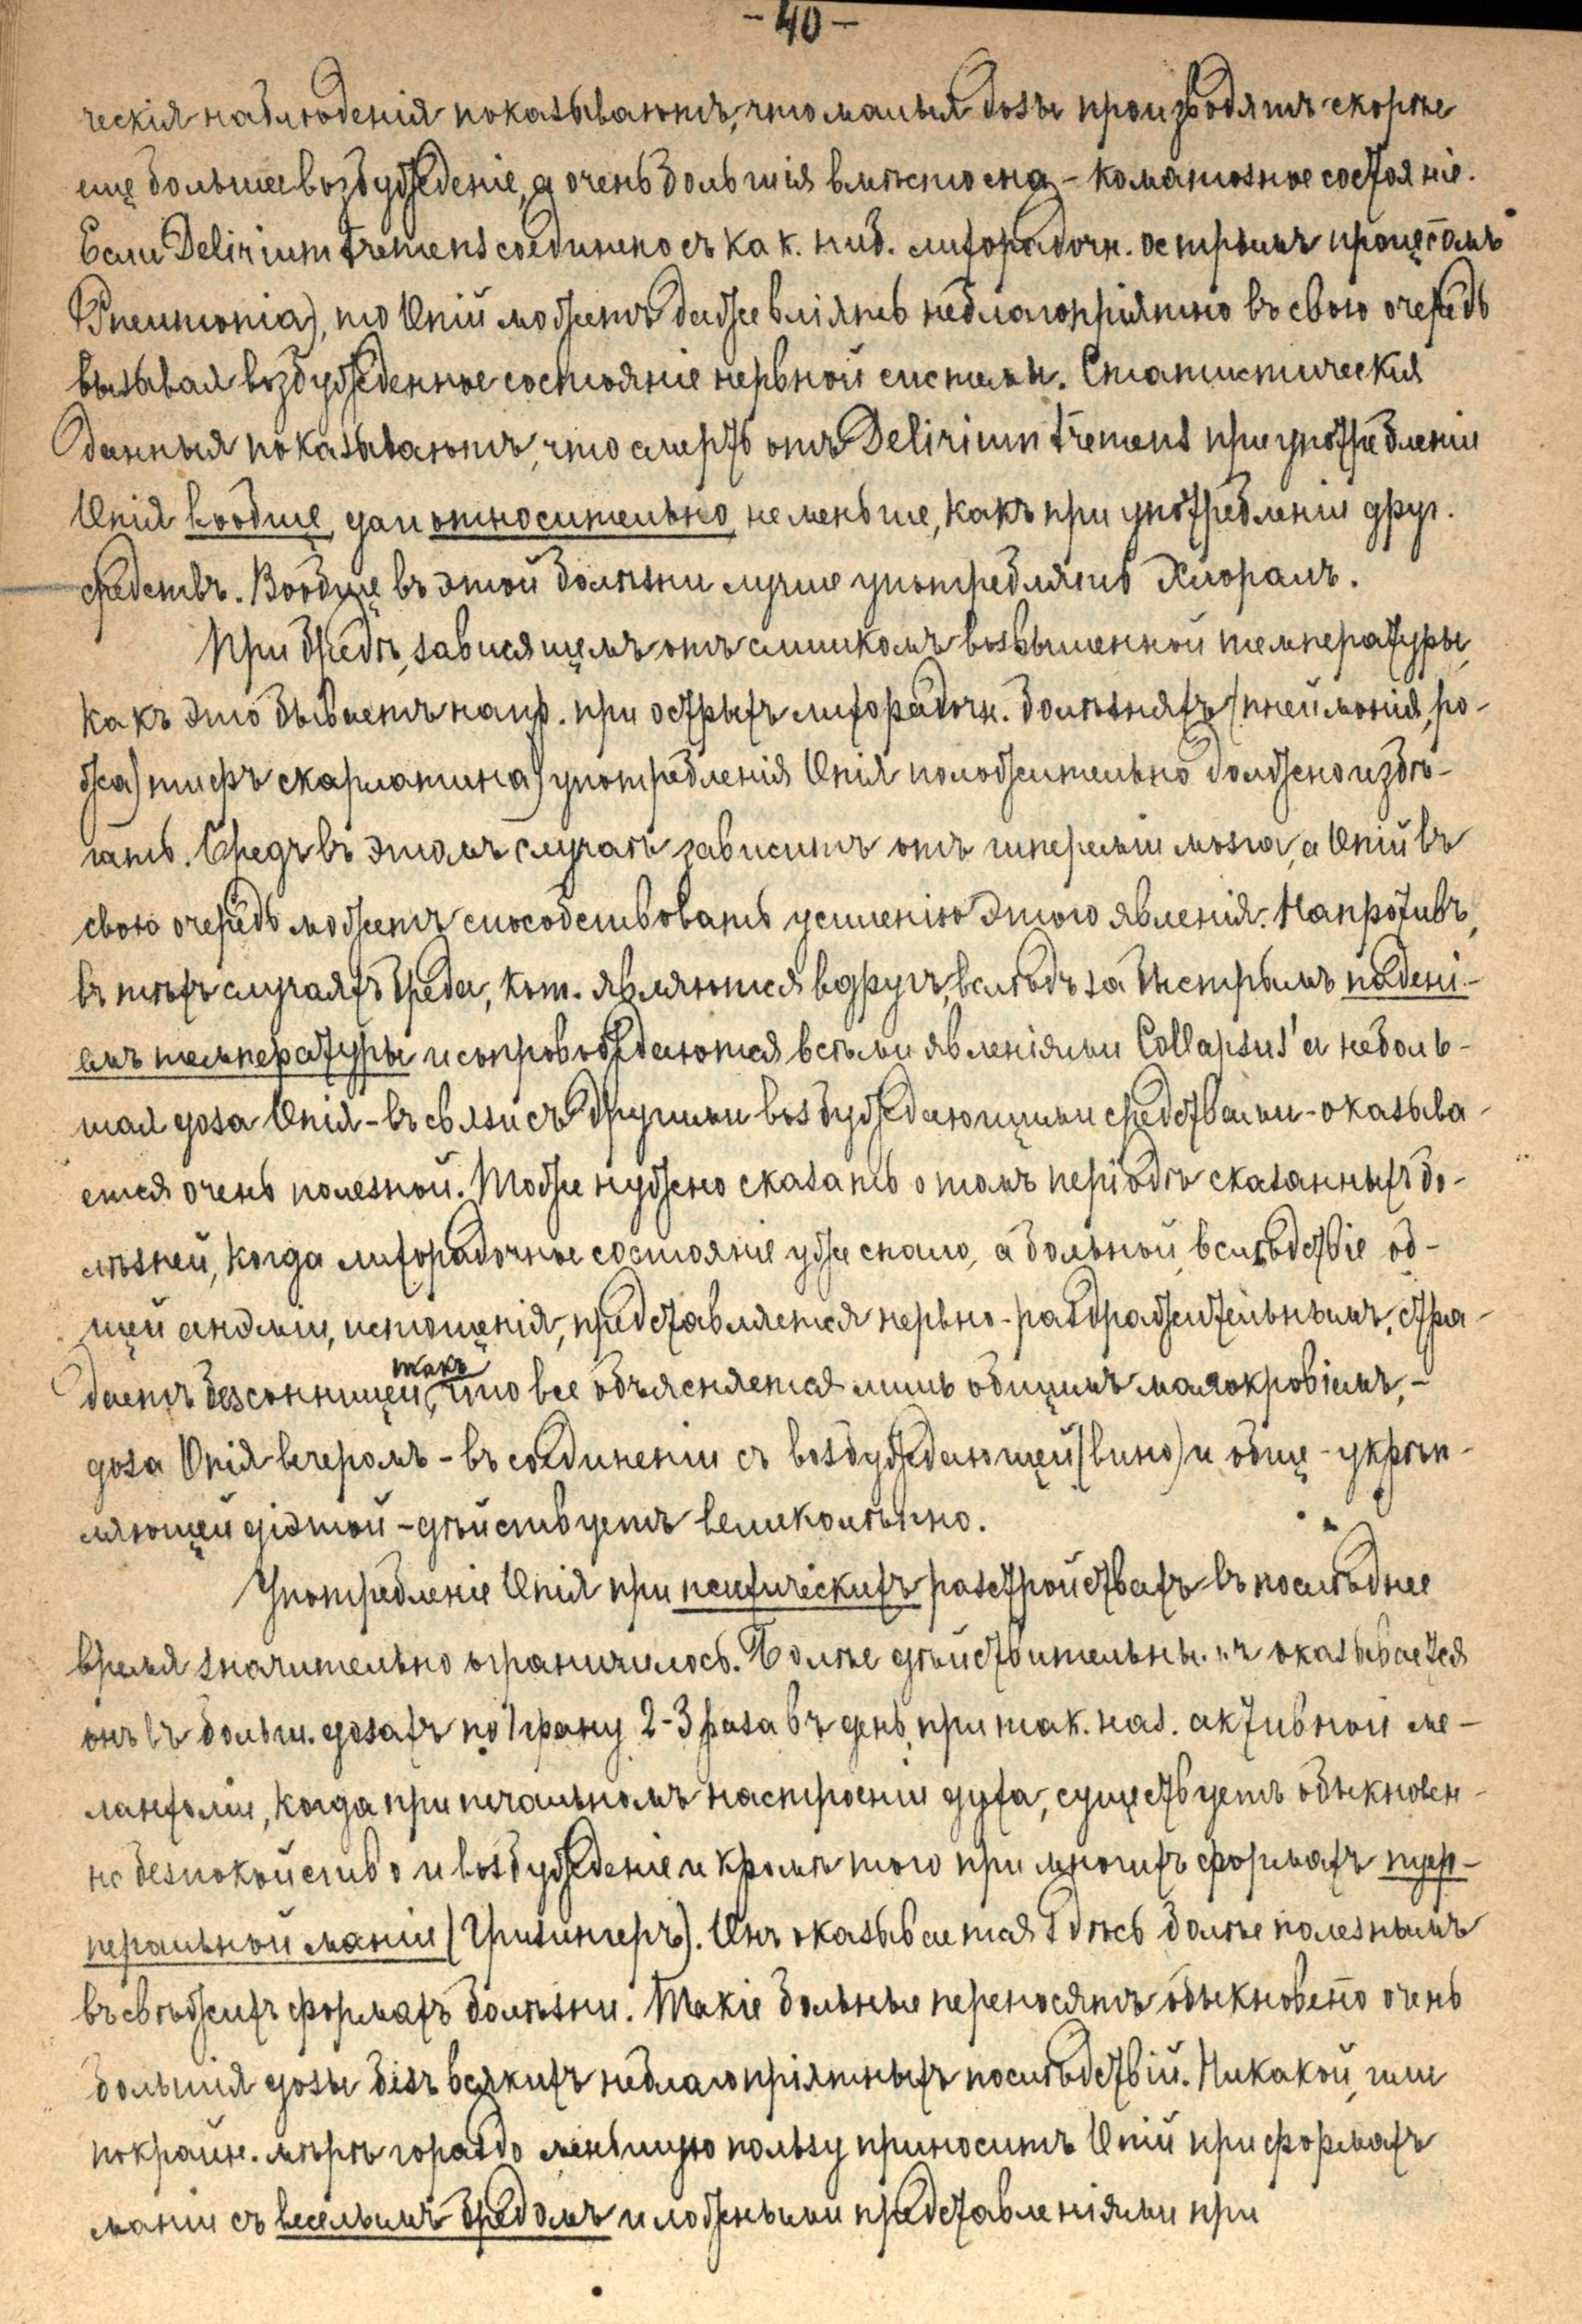 - 40 -
ческія наблюденія показываютъ, что малыя дозы производятъ скорѣе
еще большее возбужденіе, а очень большія вмѣсто сна - коматозное состояніе.
Если Delirium tremens соединено съ как. ниб. лихорадочн. острымъ процес̄омъ
(Pneumonia), то Опій можетъ даже вліять неблагопріятно въ свою очередь
вызывая возбужденное состояніе нервной системы. Статистическія
данныя показываютъ, что смерть отъ Delirium tremens при употребленіи
Опія вообще, да и относительно не меньше, какъ при употребленіи друг.
средствъ. Вообще въ этой болѣзни лучше употреблять Хлоралъ.
При бредѣ, зависящемъ отъ слишкомъ возвышенной температуры,
какъ это бываетъ напр. при острыхъ лихорадочн. болѣзняхъ (пнеймонія, ро-
жа) тифъ скарлатина) употребленія Опія положительно должно избѣ-
гать. Бредъ въ этомъ случаѣ зависитъ отъ гипереміи мозга, а Опій въ
свою очередь можетъ способствовать усиленію этого явленія. Напротивъ,
въ тѣхъ случаяхъ бреда, кот. являются вдругъ, вслѣдъ за быстрымъ паденi-
емъ температуры и сопровождаются всѣми явленіями Collapsus'а неболь-
шая доза Опія - въ связи съ другими возбуждающими средствами - оказыва-
ется очень полезной. Тоже нужно сказать о томъ періодѣ сказанныхъ бо-
лѣзней, когда лихорадочное состояніе уже спало, а больной, вслѣдствіе об-
щей анэміи, истощенія, представляется нервно-раздражительнымъ, стра-
даетъ безсонницей, такъ что все объясняется лишь общимъ малокровіемъ, -
доза Опія вечеромъ - въ соединеніи съ возбуждающей (вино) и обще-укрѣп-
ляющей діэтой - дѣйствуетъ великолѣпно.
Употребленіе Опія при психическихъ разстройствахъ въ послѣднее
время значительно ограничилось. Болѣе дѣйствительнымъ оказывается
онъ въ больш. дозахъ по 1 грану 2-3 раза въ день, при так. наз. активной ме-
ланхоліи, когда при печальномъ настроеніи духа, существуетъ обыкновен-
но безпокойство и возбужденіе и кромѣ того при многихъ формахъ пуер-
перальной маніи (Гризингеръ). Онъ оказывается здѣсь болѣе полезнымъ
въ свѣжихъ формахъ болѣзни. Такіе больные переносятъ обыкновен̄о очень
большія дозы безъ всякихъ неблагопріятныхъ послѣдствій. Никакой, или
по крайн. мѣрѣ гораздо меньшую пользу приноситъ Опій при формахъ
маніи съ веселымъ бредомъ и ложными представленіями при